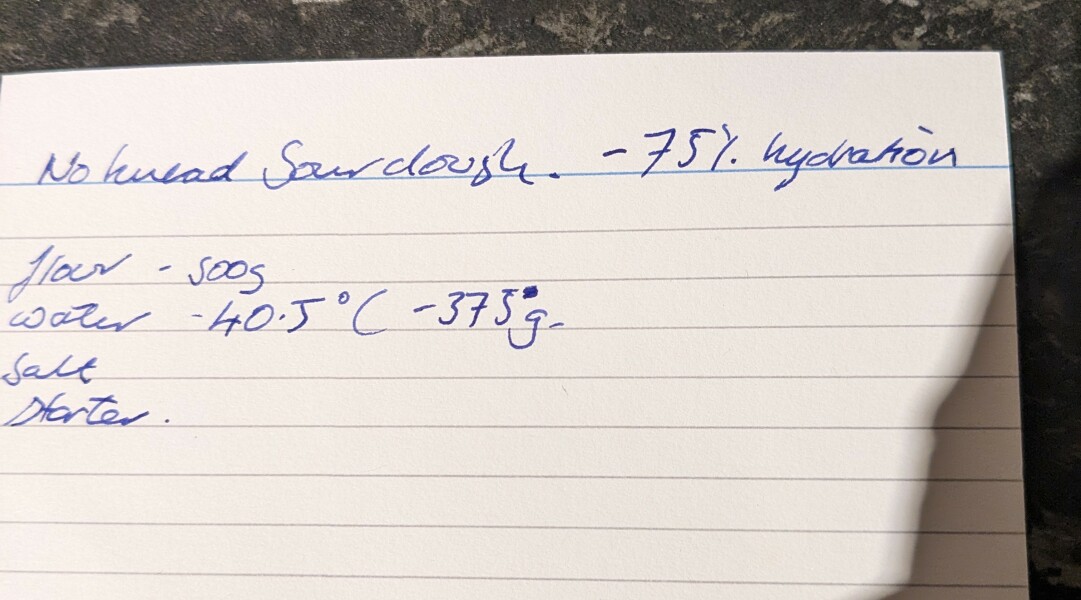 No knead Sourdough. - 75% hydration
flour - 500g
water - 40.5°C - 375g-
Salt
Starter.